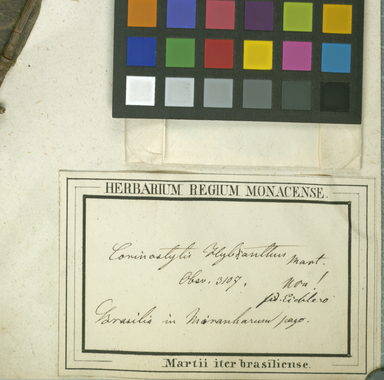 HERBARIUM REGIUM MONACENSE.
Corinostylis Hybanthus Mart.
Obsv. 3107. Non!
fid. Eichlero
Brasilia in Miranharum pago.
Martii iter brasiliense.